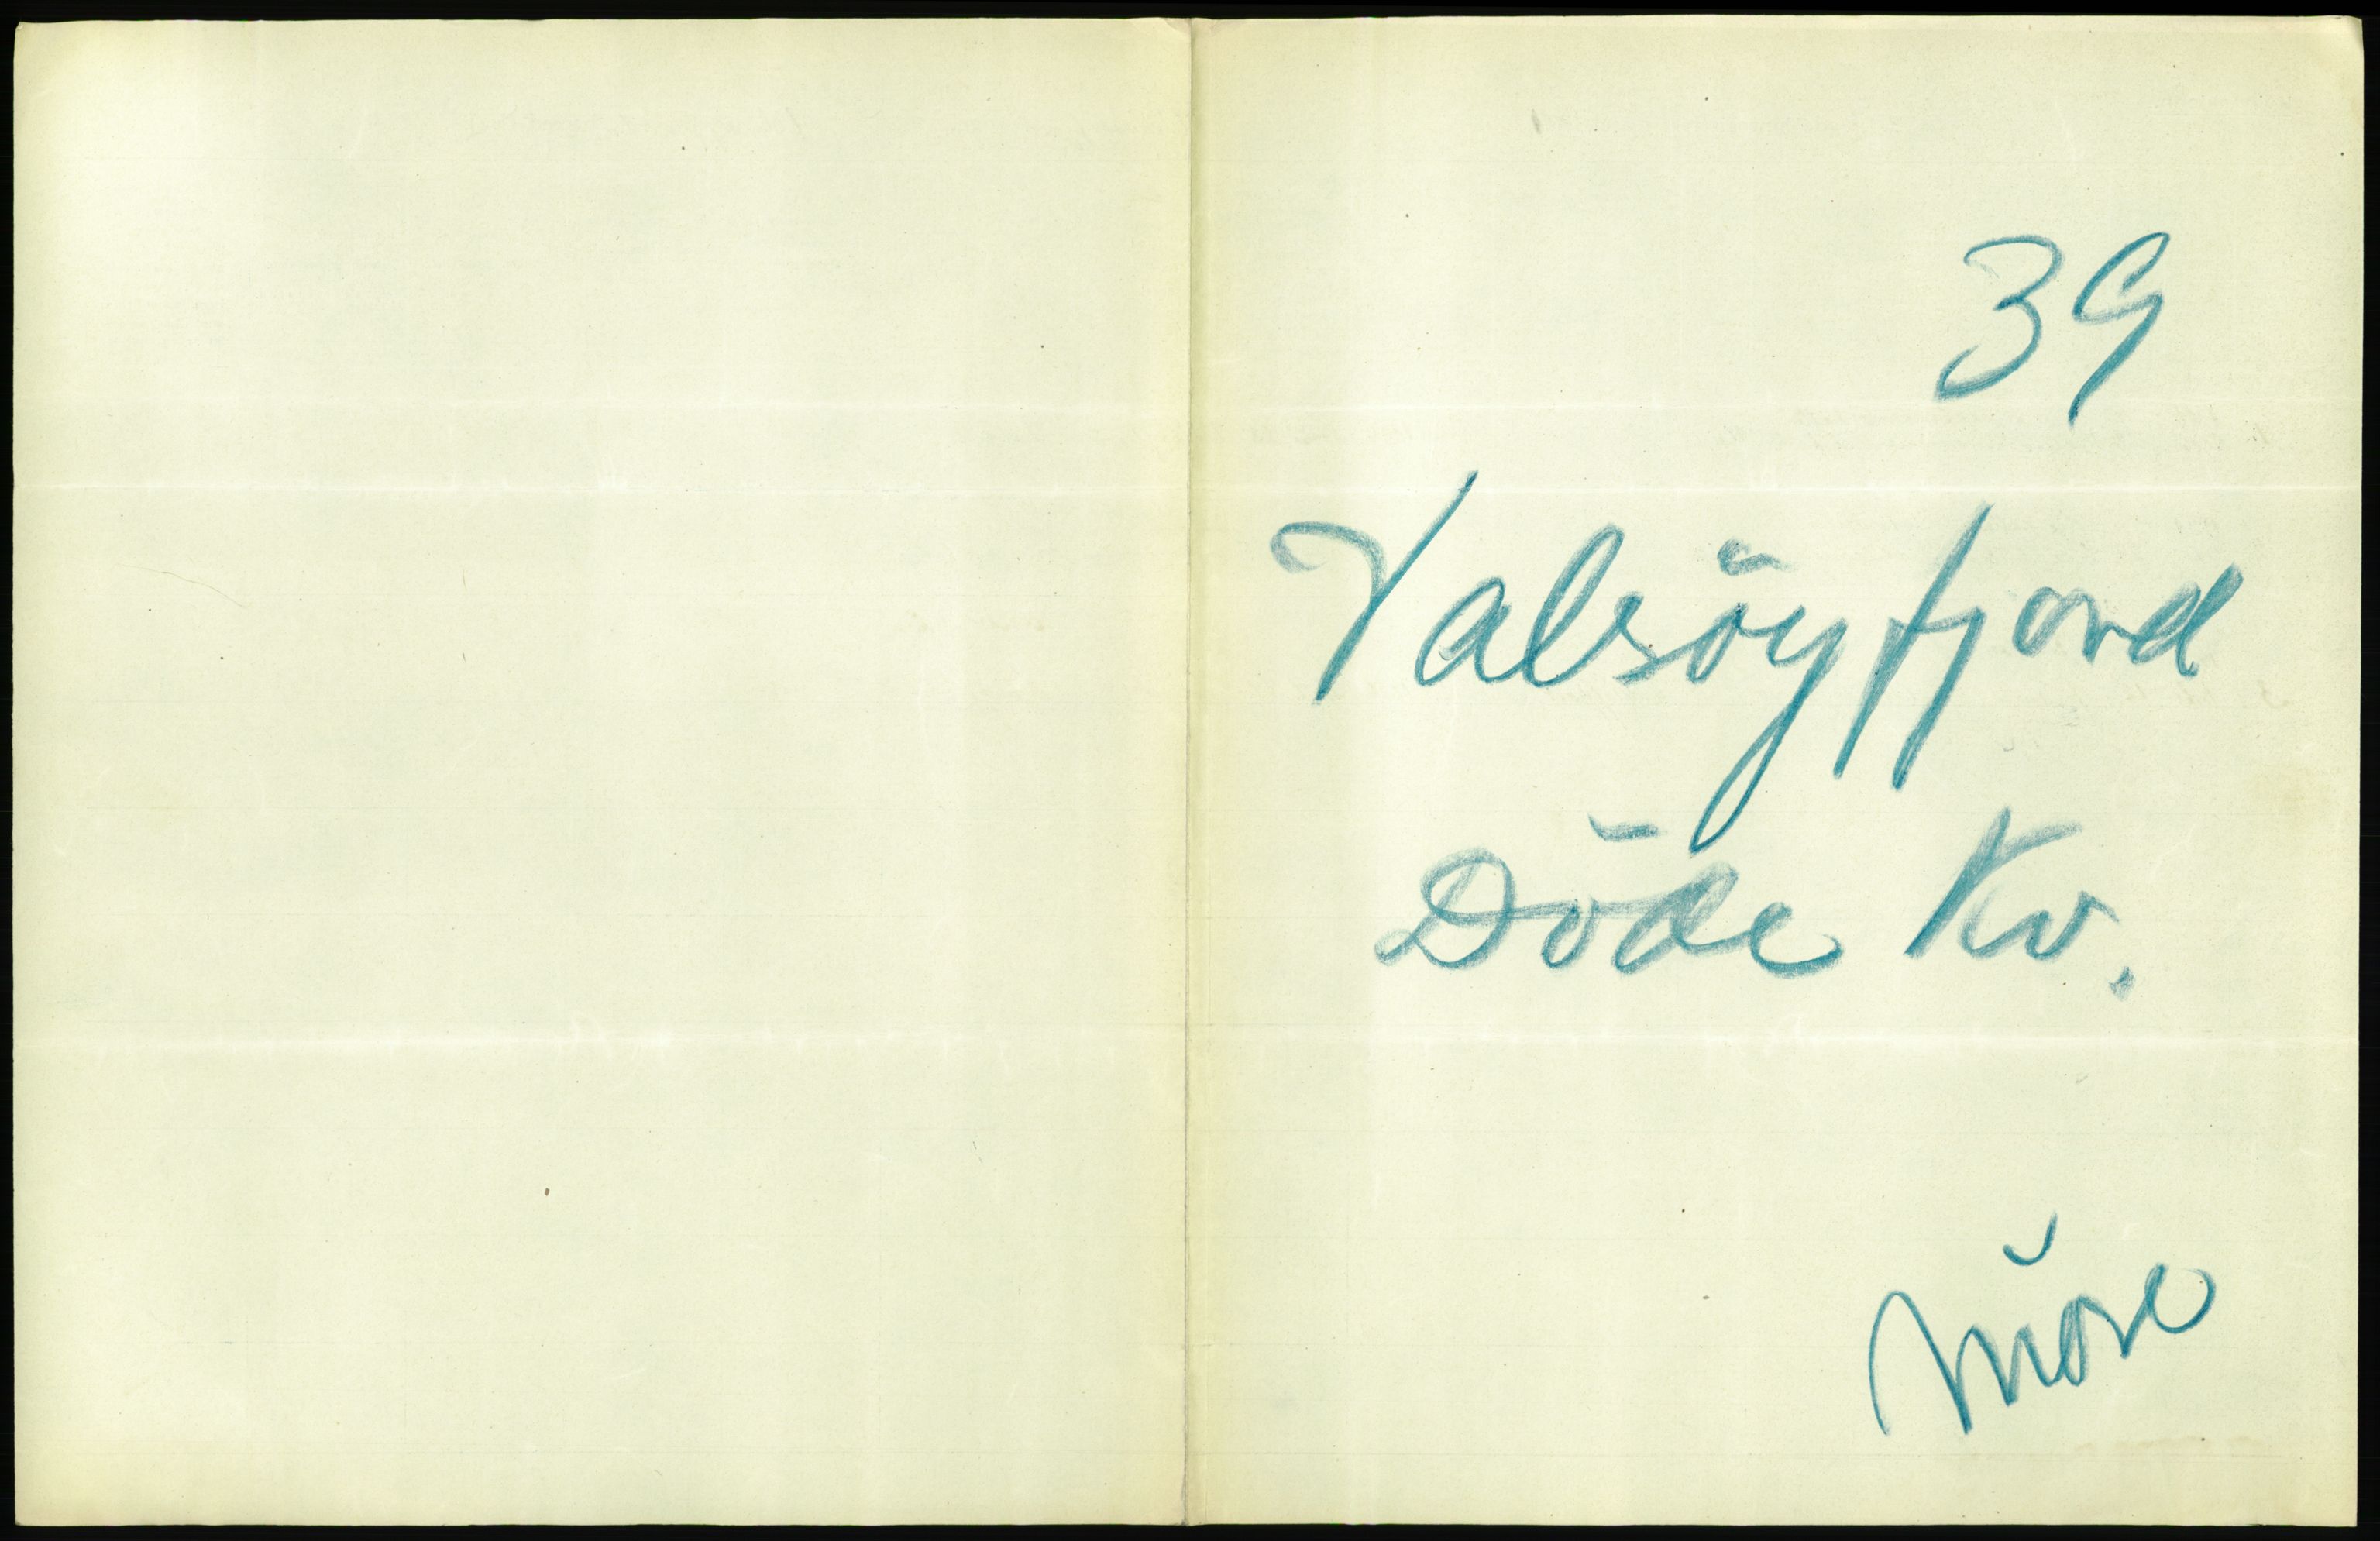 39
Valsöyfjord
Döde Kv.
Möre